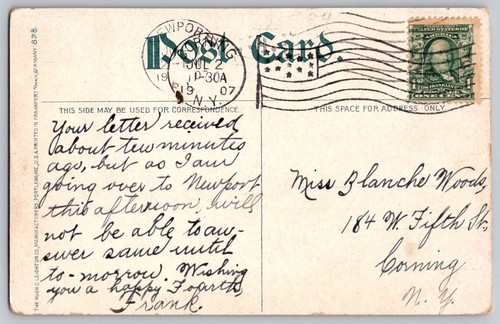 Post Card.
JUL 2
10-30A
1907
N.Y.
THIS SIDE MAY BE USED FOR CORRESPONDENCE
THIS SPACE FOR ADDRESS ONLY.
Your letter received
about tew minutes
ago, but as I am
going over to Newport
this afternoon, will
not be able to an-
swer same until
to-morrow. Wishing
you a happy Fourth,
Frank.
Miss Blanche Woods,
184 W. Fifth St.,
Corning
N. Y.
THE HUGH C. LEIGHTON CO., MANUFACTURERS, PORTLAND, ME., U.S.A. PRINTED IN FRANKFORT GERMANY 828